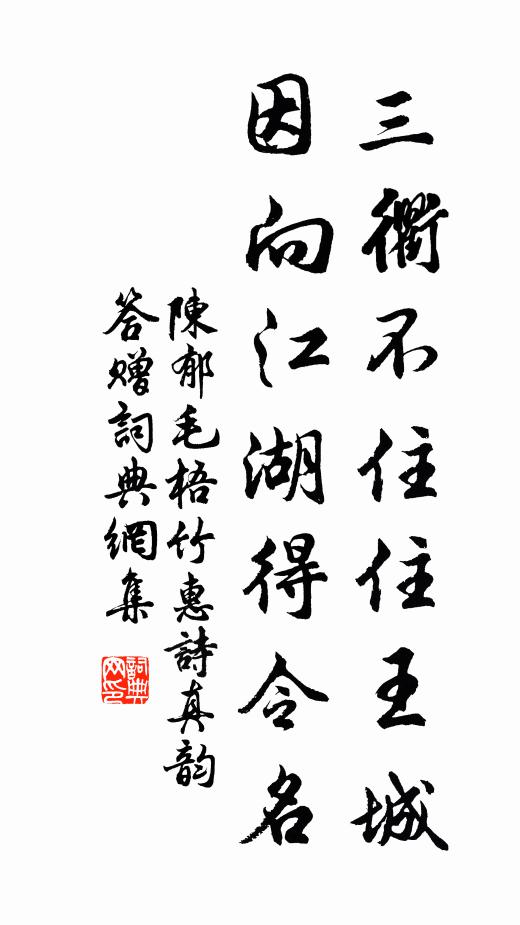 三衢不住住王城
因向江湖得令名
陳郁毛梧竹惠詩真韵
答贈詞典網集
詞典网印